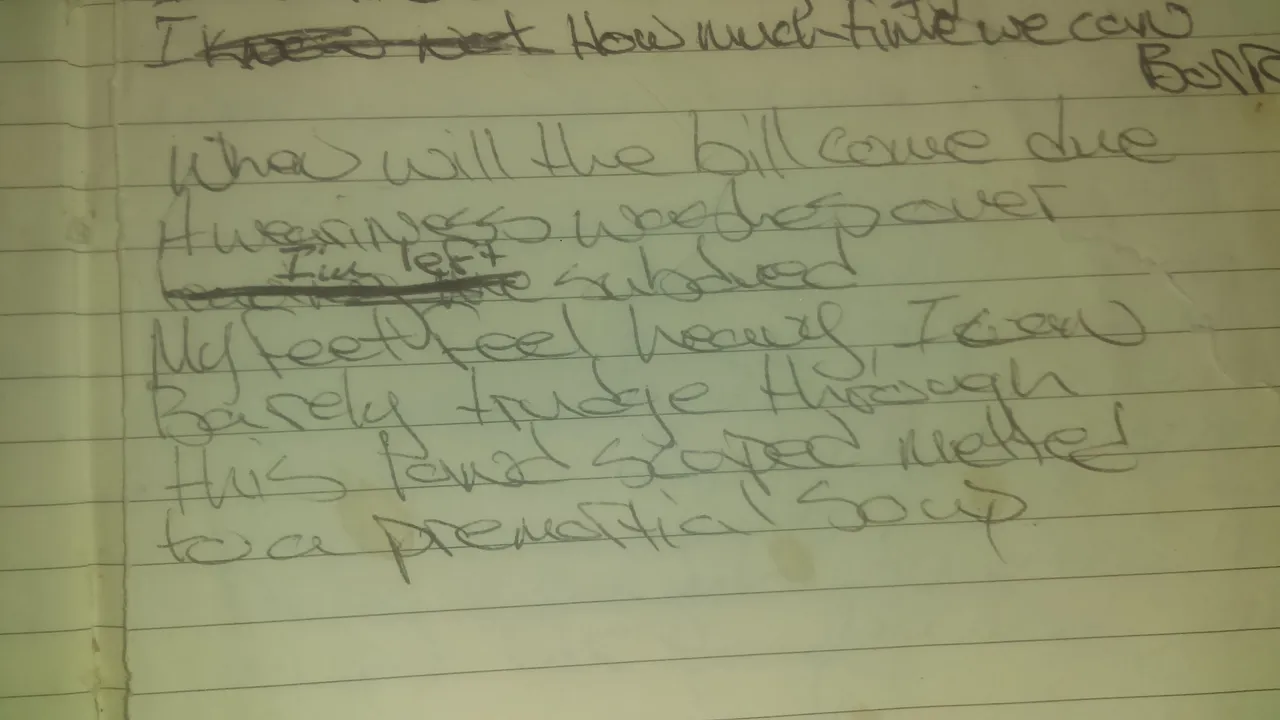 I know not How much time we can
Borr
When will the bill come due
A weariness washes over
I'm left
me subdued
My feet feel heavy, I can
Barely trudge through
this land scaped melted
to a premortial soup